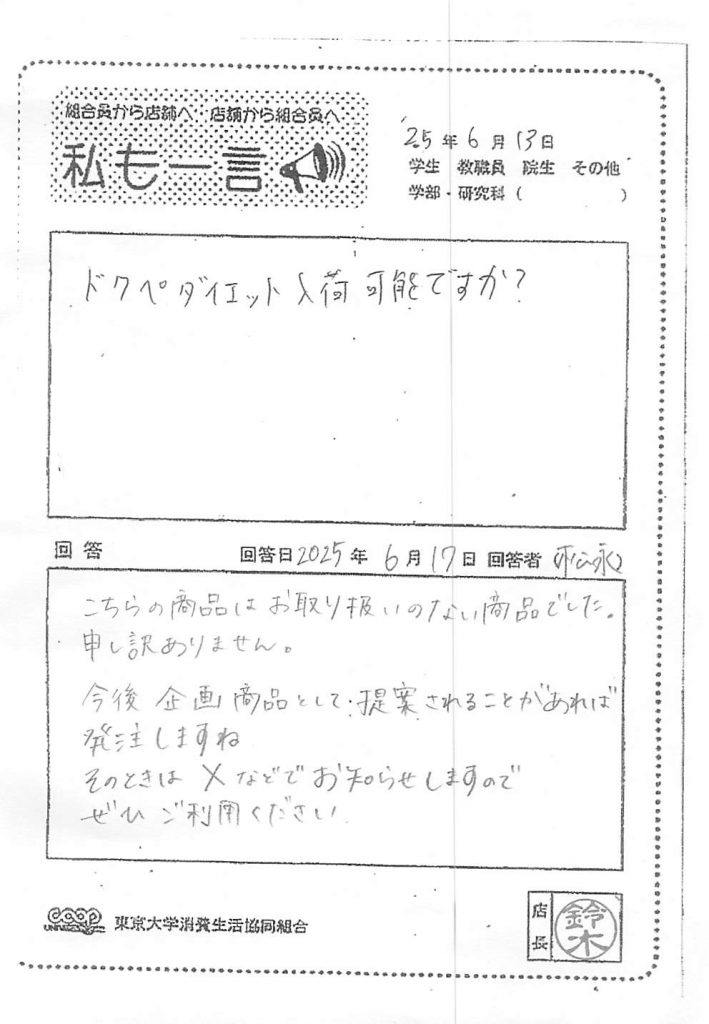 組合員から店舗へ 店舗から組合員へ
私も一言
25年6月13日
学生 教職員 院生 その他
学部・研究科( )
ドクペダイエット入荷可能ですか?
回答 回答日2025年6月17日 回答者(松永)
こちらの商品はお取り扱いのない商品でした。
申し訳ありません。
今後 企画商品として提案されることがあれば
発注しますね
そのときは Xなどでお知らせしますので
ぜひ ご利用ください
coop 東京大学消費生活協同組合
店長 鈴木